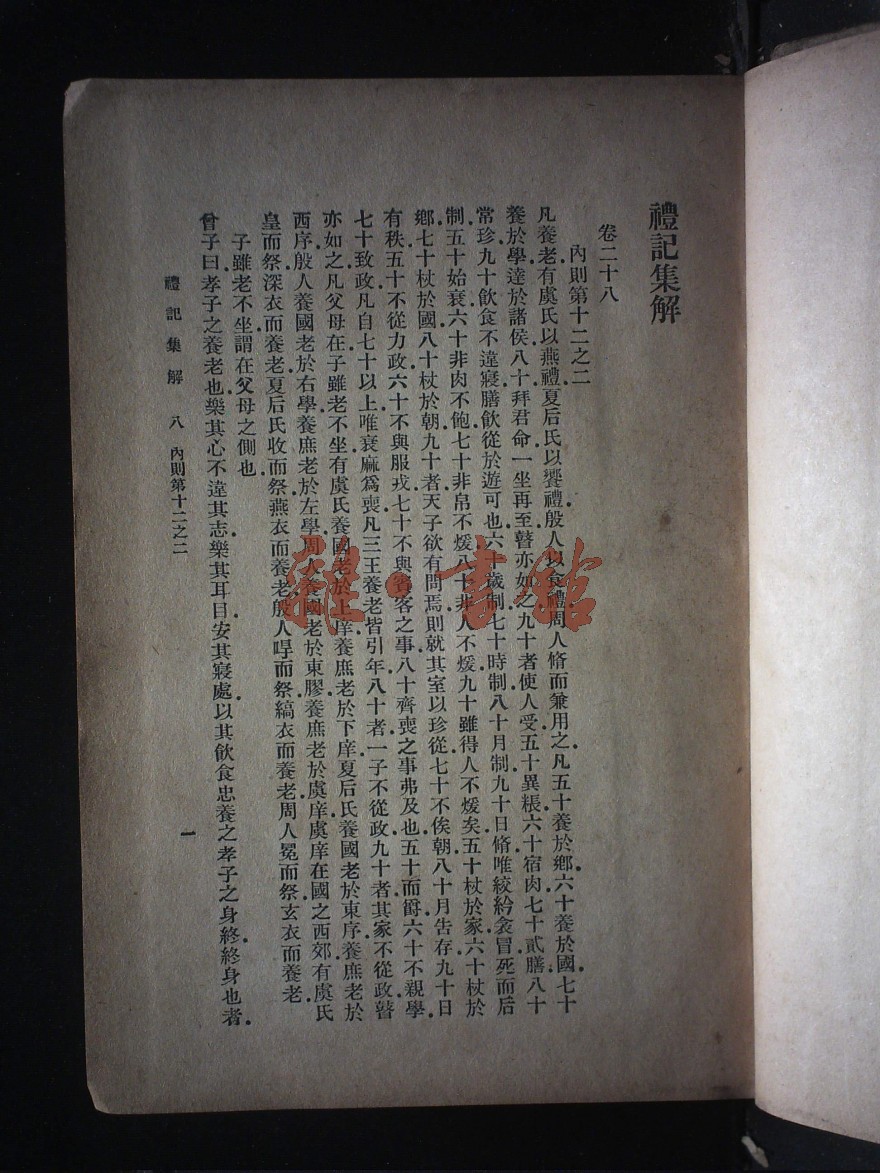 禮記集解
卷二十八
內則第十二之二
凡養老有虞氏以燕禮夏后氏以饗禮殷人以食禮周人脩而兼用之凡五十養於鄉六十養於國七十
養於學達於諸侯八十拜君命一坐再至瞽亦如之九十者使人受五十異粻六十宿肉七十貳膳八十
常珍九十飲食不違寢膳飲從於遊可也六十歲制七十時制八十月制九十日脩唯絞紟衾冒死而后
制五十始衰六十非肉不飽七十非帛不煖八十非人不煖九十雖得人不煖矣五十杖於家六十杖於
鄉七十杖於國八十杖於朝九十者天子欲有問焉則就其室以珍從七十不俟朝八十月告存九十日
有秩五十不從力政六十不與服戎七十不與賓客之事八十齊喪之事弗及也五十而爵六十不親學
七十致政凡自七十以上唯衰麻爲喪凡三王養老皆引年八十者一子不從政九十者其家不從政瞽
亦如之凡父母在子雖老不坐有虞氏養國老於上庠養庶老於下庠夏后氏養國老於東序養庶老於
西序殷人養國老於右學養庶老於左學周人養國老於東膠養庶老於虞庠虞庠在國之西郊有虞氏
皇而祭深衣而養老夏后氏收而祭燕衣而養老殷人冔而祭縞衣而養老周人冕而祭玄衣而養老
子雖老不坐謂在父母之側也
曾子曰孝子之養老也樂其心不違其志樂其耳目安其寢處以其飲食忠養之孝子之身終終身也者
禮記集解 八 內則第十二之二
一
雜·書館